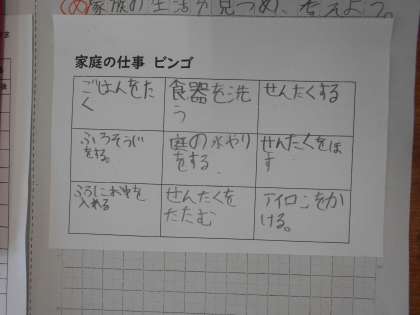 め 家族の生活が見つめ、考えよう。
家庭の仕事 ビンゴ
ごはんをた
く
食器を洗
う
せんたくする
ふろそうじ
をする。
庭の水やり
をする
せんたくをほ
す
ふろに
入れる
せんたくを
たたむ
アイロンをか
ける。